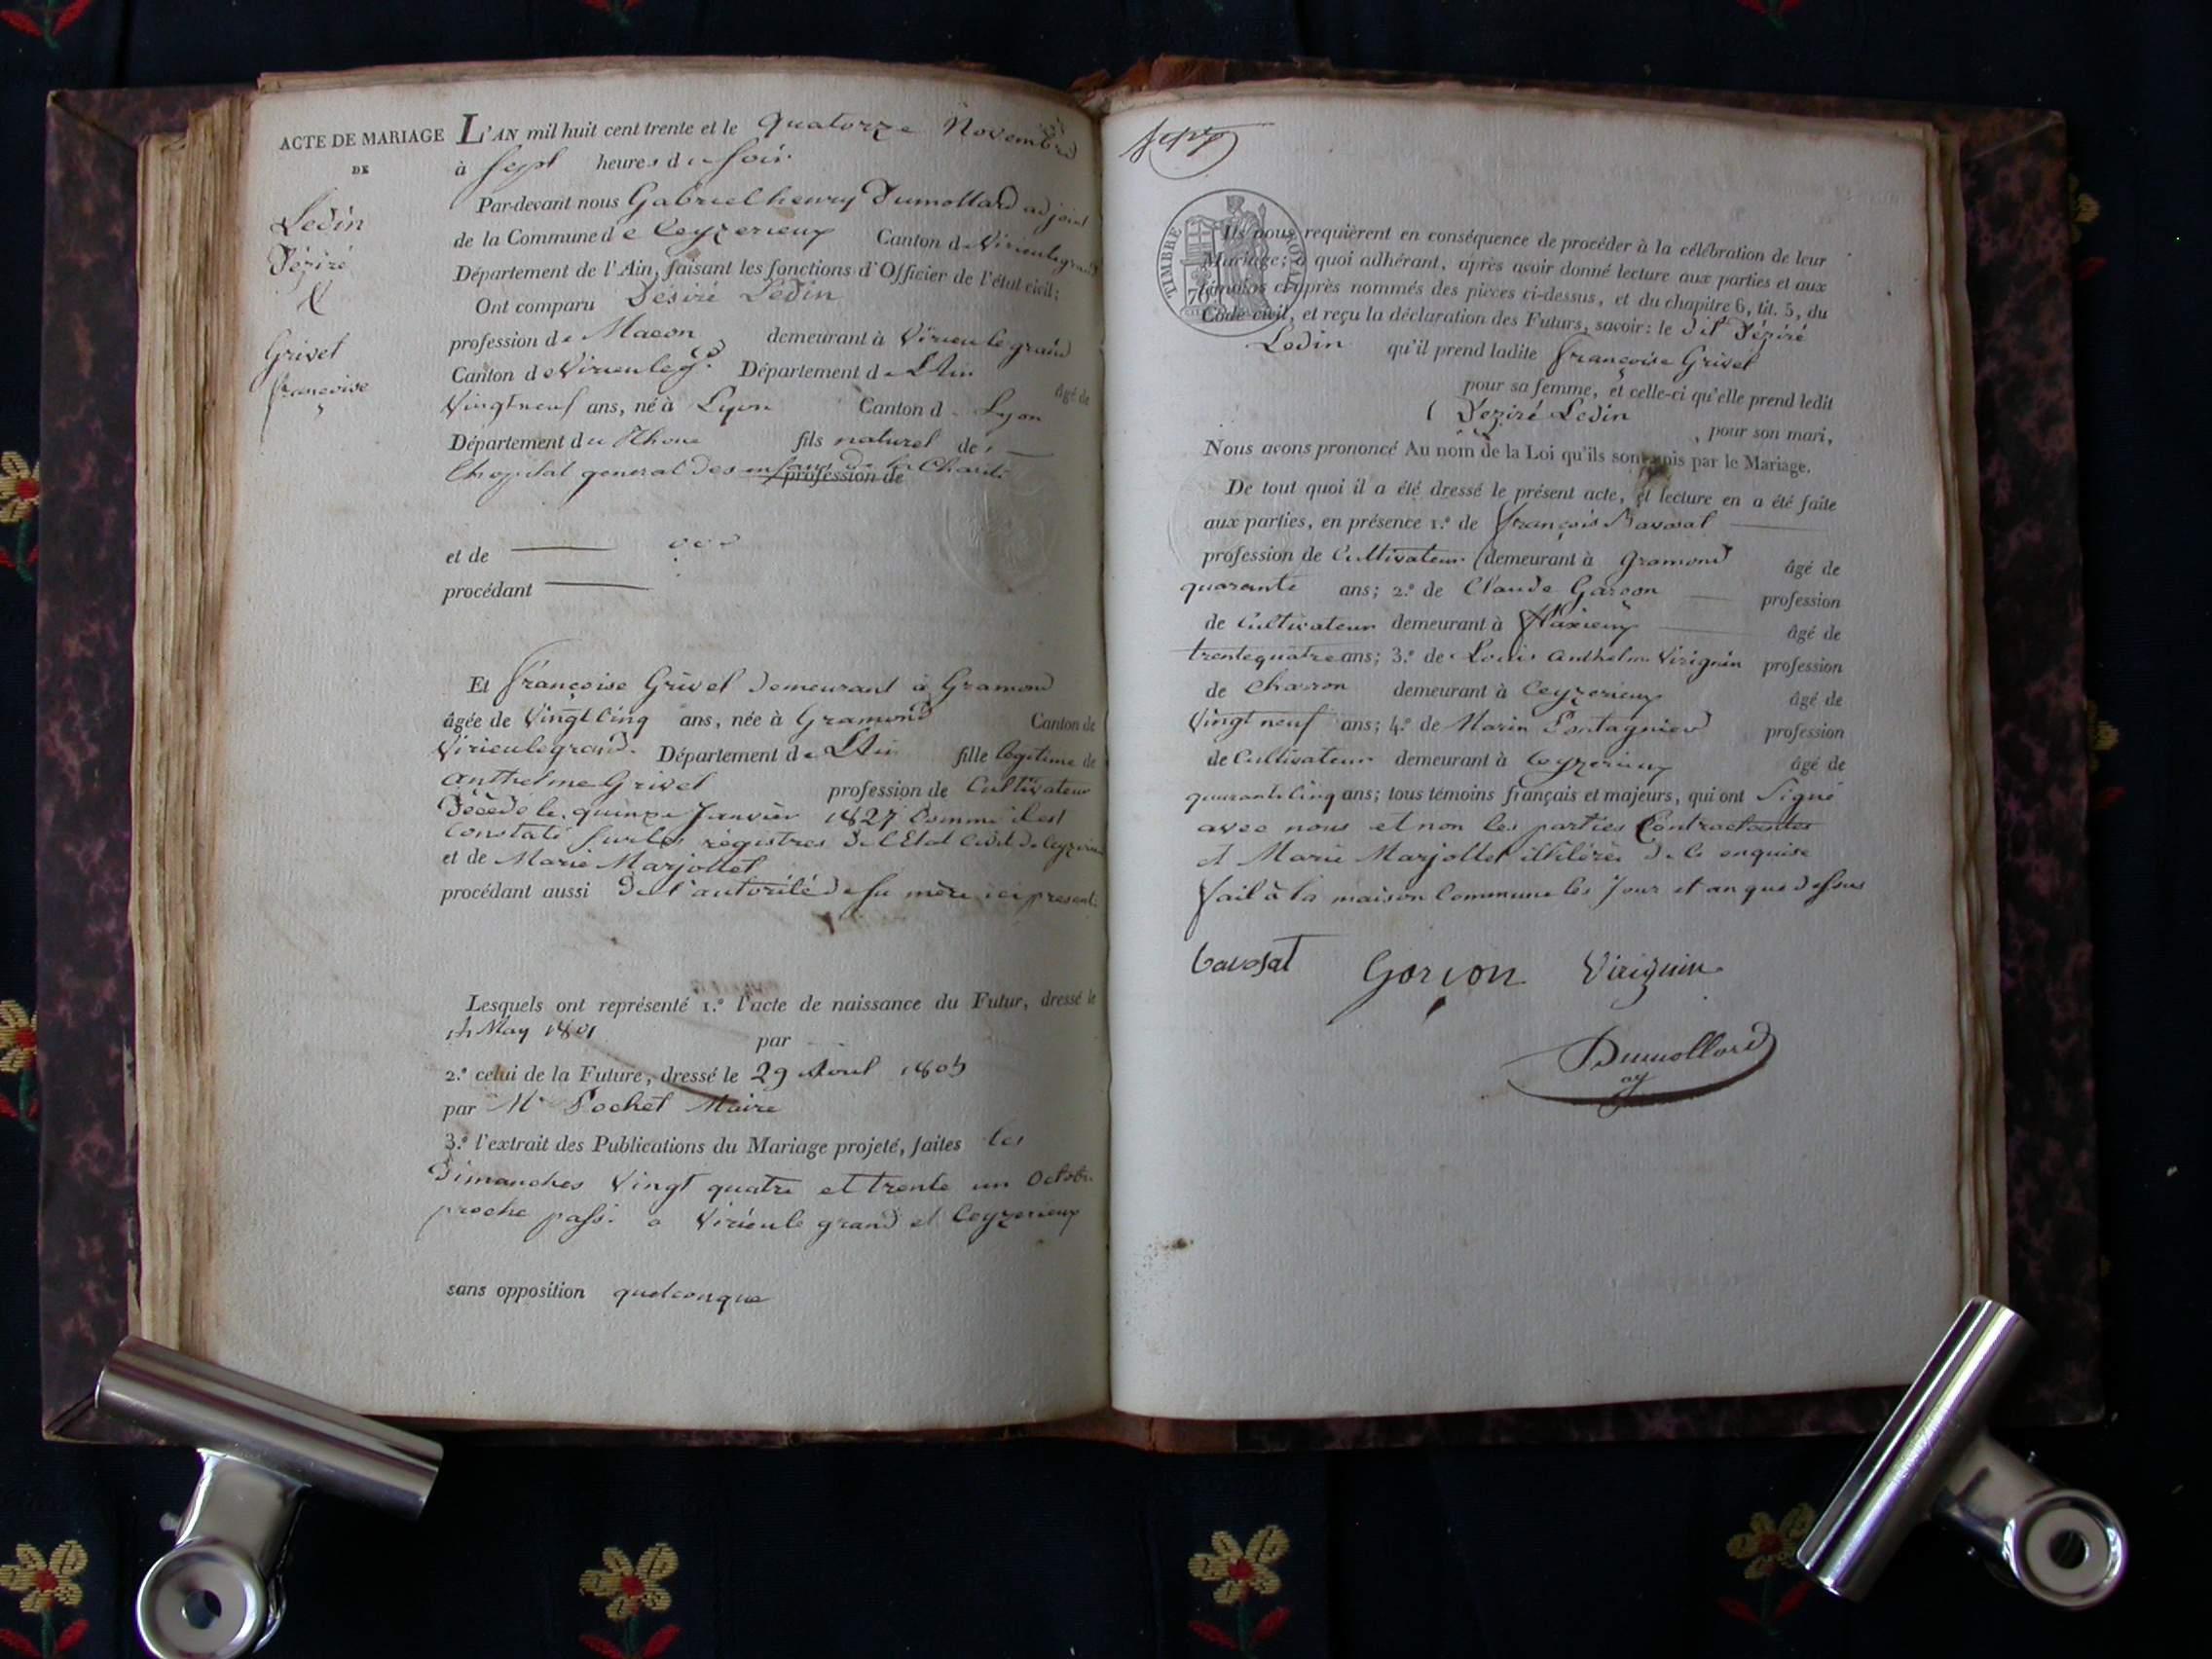 ACTE DE MARIAGE
DE
Ledin
Déziré
&
Grivel
françoise
L'AN mil huit cent trente et le quatorze Novembre
à sept heures du soir
Par-devant nous Gabriel henry Dumollard adjoint
de la Commune de Ceyzerieux Canton de Virieulegrand
Département de l'Ain, faisant les fonctions d'Officier de l'état civil;
Ont comparu Désiré Ledin
profession de Macon demeurant à Virieu le grand
Canton de Virieuleg.d Département de L'Ain âgé de
Vingtneuf ans, né à Lyon Canton d Lyon
Département du Rhone fils naturel de
L'hopital general des enfans de la Charité
profession de
et de
procédant
Et françoise Grivel demeurant à Gramond
âgée de Vingt Cinq ans, née à Gramond Canton de
Virieulegrand. Département de L'Ain fille légitime de
Anthelme Grivel profession de Cultivateur
Décédé le quinze Janvier 1827 Comme il est
Constaté sur les régistres de l'Etat Civil de Ceyzerieu
et de Marie Marjollet
procédant aussi de l'autorité de sa mère ici presente
Lesquels ont représenté 1.º l'acte de naissance du Futur, dressé le
May 1801 par
2.º celui de la Future, dressé le 29 Avril 1805
par Mr Pochet Maire
3.º l'extrait des Publications du Mariage projeté, faites les
Dimanches Vingt quatre et trente un Octobre
proche passé a Virieu le grand et Ceyzerieux
sans opposition quelconque
TIMBRE ROYAL
Ils nous requièrent en conséquence de procéder à la célébration de leur
Mariage; à quoi adhérant, après avoir donné lecture aux parties et aux
témoins ci-après nommés des pièces ci-dessus, et du chapitre 6, tit. 5, du
Code civil, et reçu la déclaration des Futurs, savoir: le dit Déziré
Ledin qu'il prend ladite françoise Grivel
pour sa femme, et celle-ci qu'elle prend ledit
Deziré Ledin, pour son mari,
Nous avons prononcé Au nom de la Loi qu'ils sont unis par le Mariage.
De tout quoi il a été dressé le présent acte, et lecture en a été faite
aux parties, en présence 1.º de françois Bavosat
profession de Cultivateur demeurant à Gramond âgé de
quarante ans; 2.º de Claude Gorson profession
de Cultivateur demeurant à Flaxieux âgé de
trentequatre ans; 3.º de Louis Anthelme Virignin profession
de Charron demeurant à Ceyzerieux âgé de
Vingt neuf ans; 4.º de Marin Pontagnier profession
de Cultivateur demeurant à Ceyzerieux âgé de
quarantecinq ans; tous témoins français et majeurs, qui ont Signé
avec nous et non les parties Contractantes
et Marie Marjollet illitérés de ce enquise
fait à la maison Commune les jour et an que dessus
bavosat Gorson Virignin
Dumollard